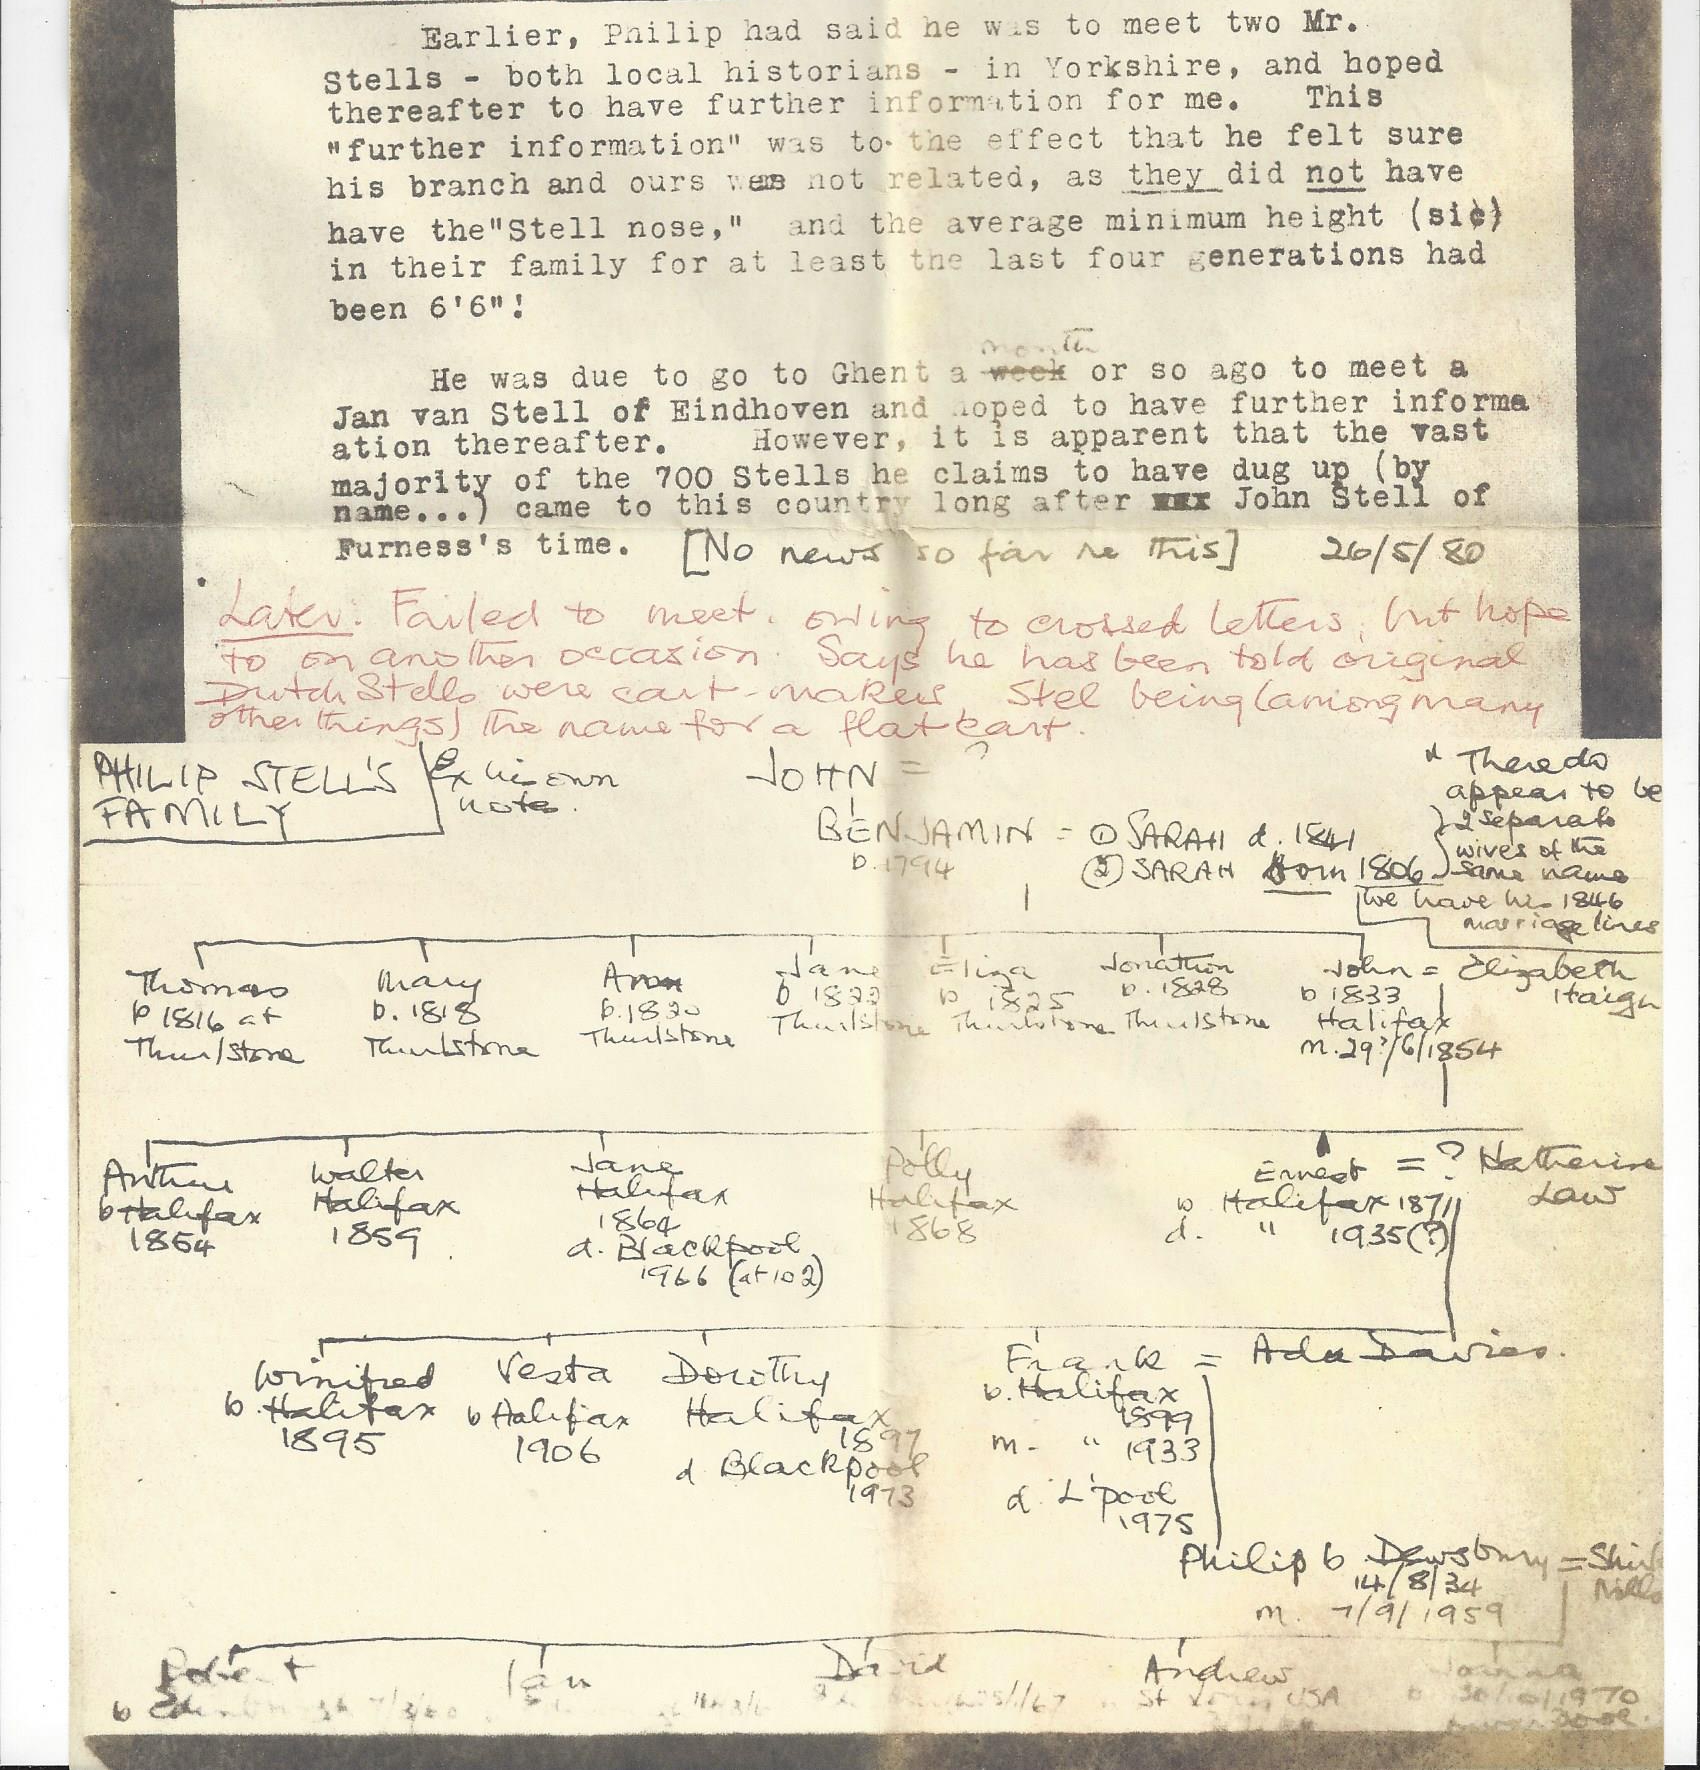 Earlier, Philip had said he was to meet two Mr.
Stells - both local historians - in Yorkshire, and hoped
thereafter to have further information for me. This
"further information" was to the effect that he felt sure
his branch and ours were not related, as they did not have
have the"Stell nose," and the average minimum height (sic)
in their family for at least the last four generations had
been 6'6"!
month
He was due to go to Ghent a week or so ago to meet a
Jan van Stell of Eindhoven and hoped to have further informa
ation thereafter. However, it is apparent that the vast
majority of the 700 Stells he claims to have dug up (by
name...) came to this country long after xxx John Stell of
Furness's time. [No news so far re this] 26/5/80
Later: Failed to meet. owing to crossed letters, but hope
to on another occasion. Says he has been told original
Dutch Stells were cart-makers Stel being (among many
other things) the name for a flat cart.
PHILIP STELL'S
FAMILY
Ex his own
note.
JOHN = ?
BENJAMIN = ① SARAH d. 1841
b. 1794 ② SARAH born 1806
* There do
appear to be
2 separate
wives of the
same name
we have his 1846
marriage lines
Thomas Mary Ann Jane Eliza Jonathan John = Elizabeth Haigh
b 1816 at b. 1818 b. 1820 b 1822 b 1825 b. 1828 b 1833
Thurlstone Thurlstone Thurlstone Thurlstone Thurlstone Thurlstone Halifax
m. 29?/6/1854
Arthur Walter Jane Polly Ernest = ? Katherine Law
b Halifax Halifax Halifax Halifax b Halifax 1871
1854 1859 1864 1868 d. " 1935(?)
d. Blackpool
1966 (at 102)
Winifred Vesta Dorothy Frank = Ada Davies.
b. Halifax b Halifax Halifax b. Halifax
1895 1906 1897 1899
d Blackpool m. " 1933
1973 d. L'pool
1975
Philip b Dewsbury =
14/8/34
m. 7/9/1959
Robert Ian David Andrew Joanna
b USA 1970